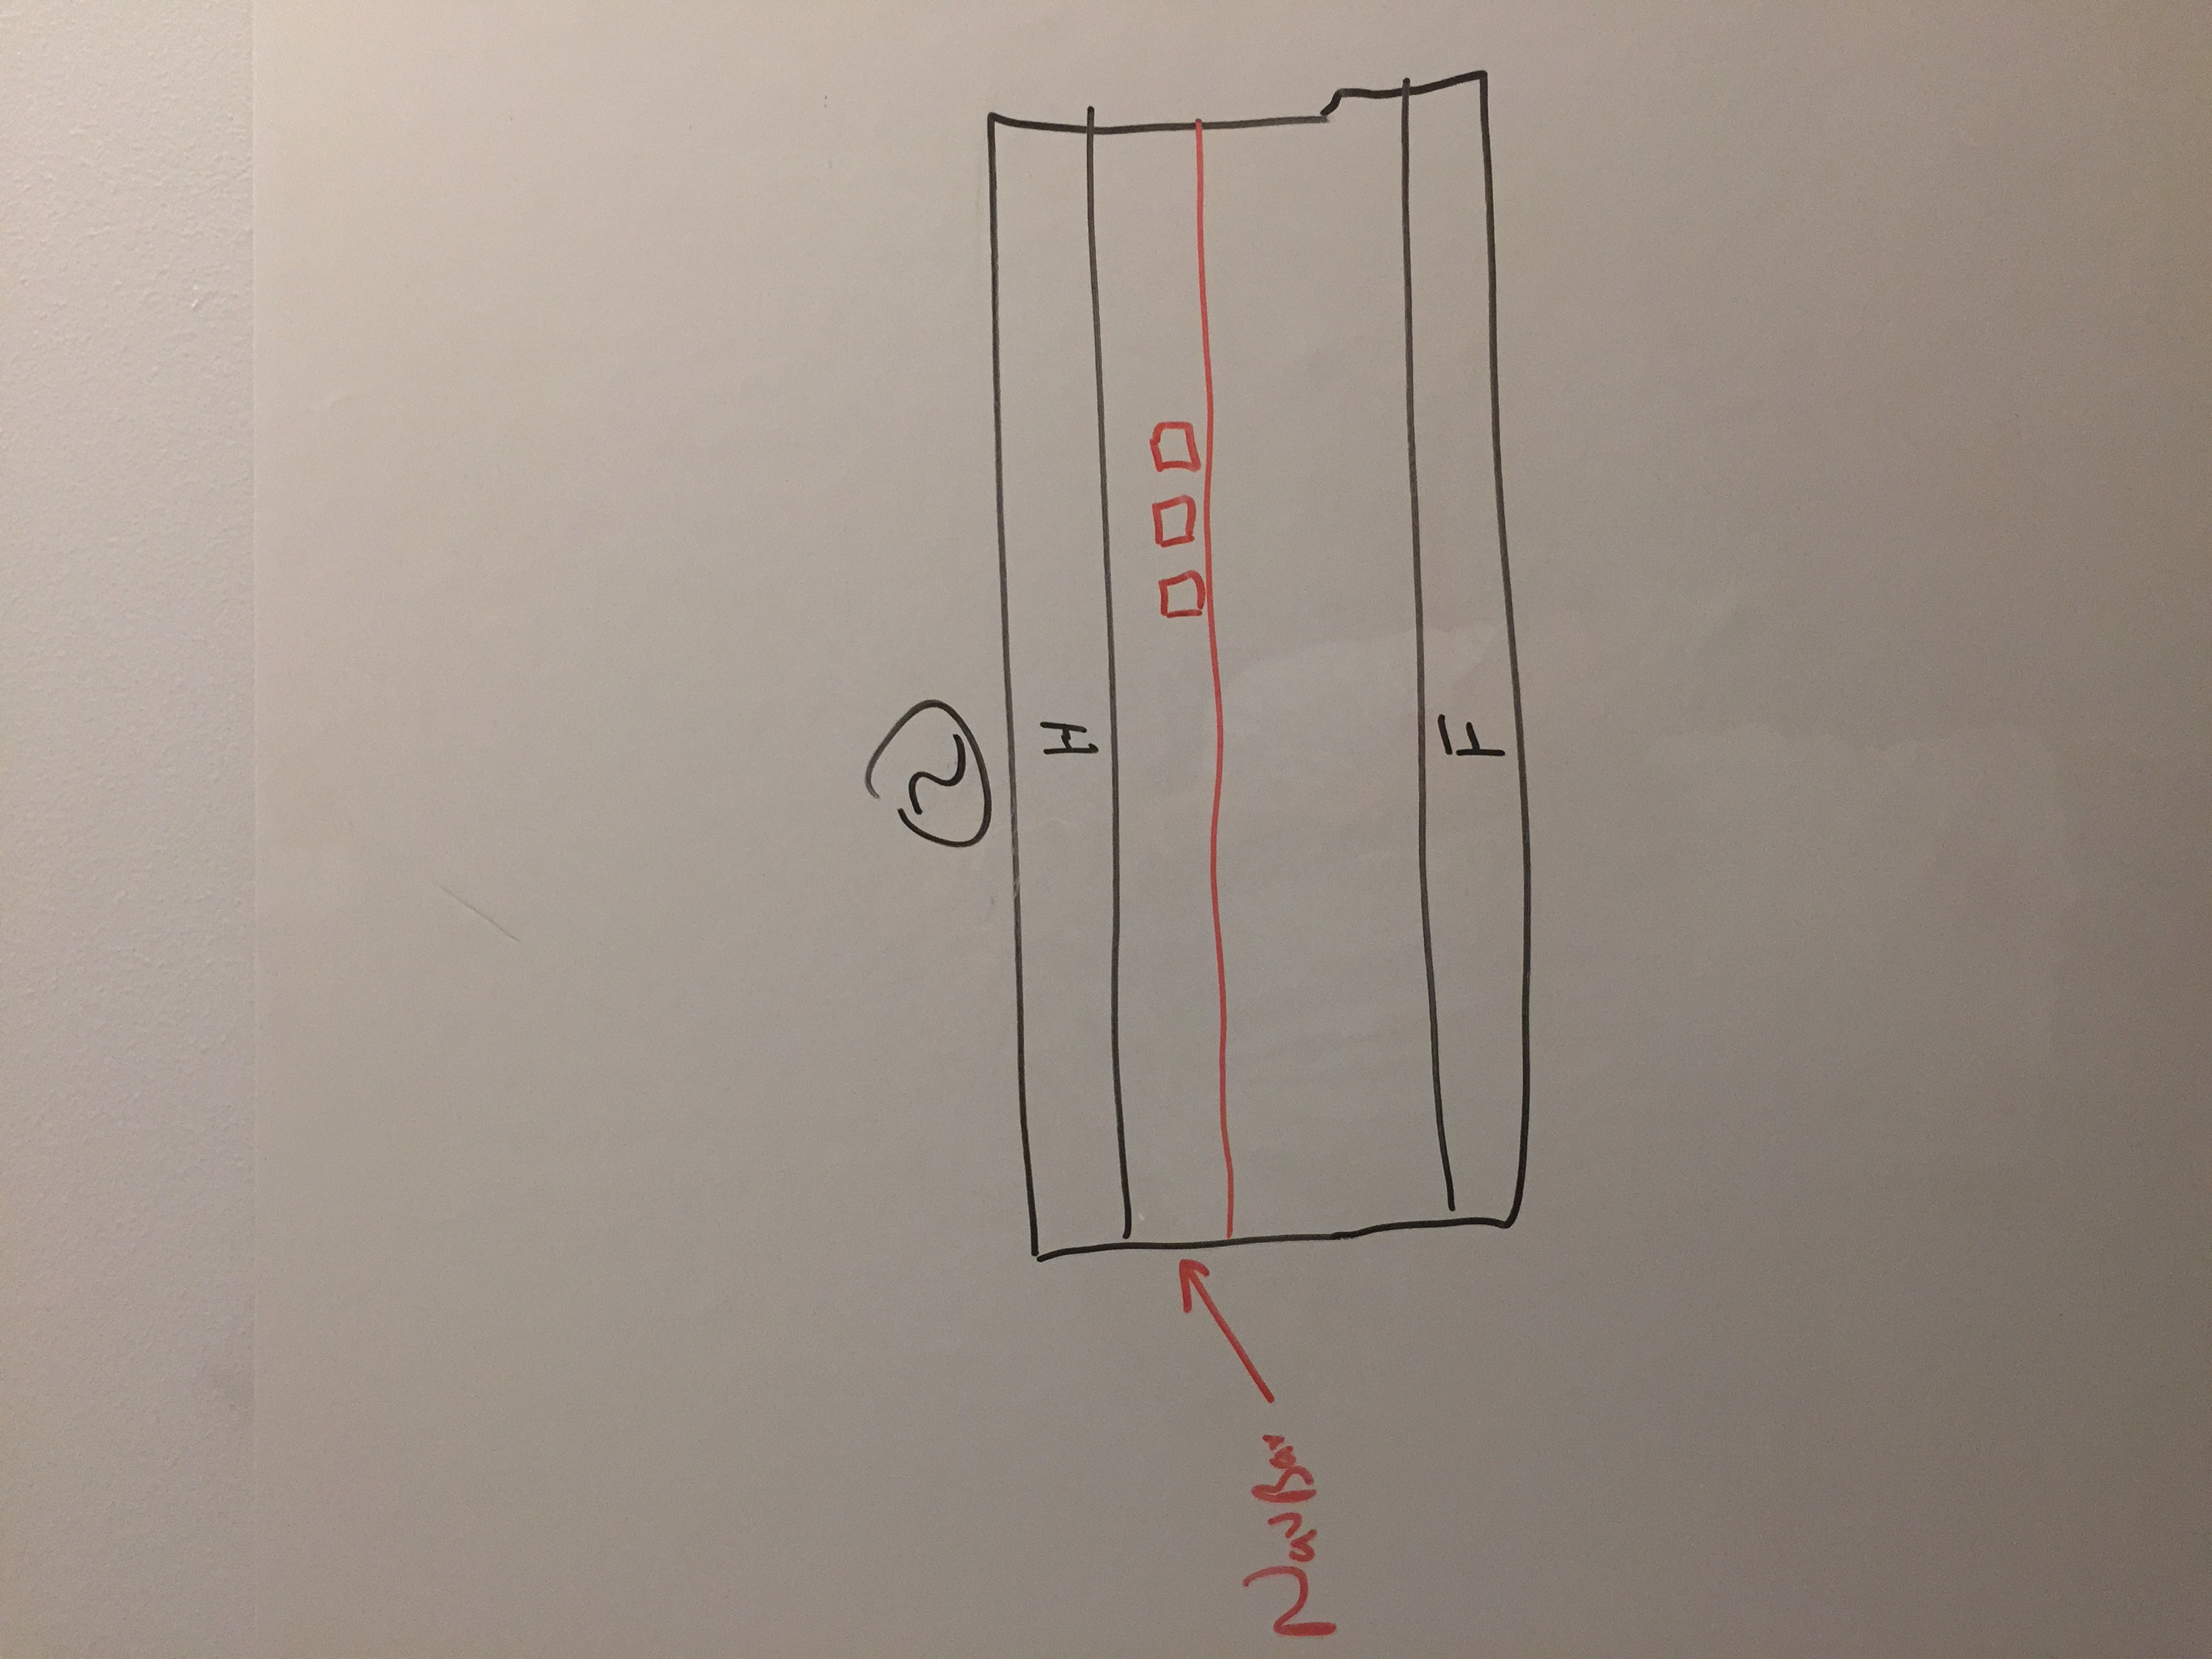 2
H
NavBar
F